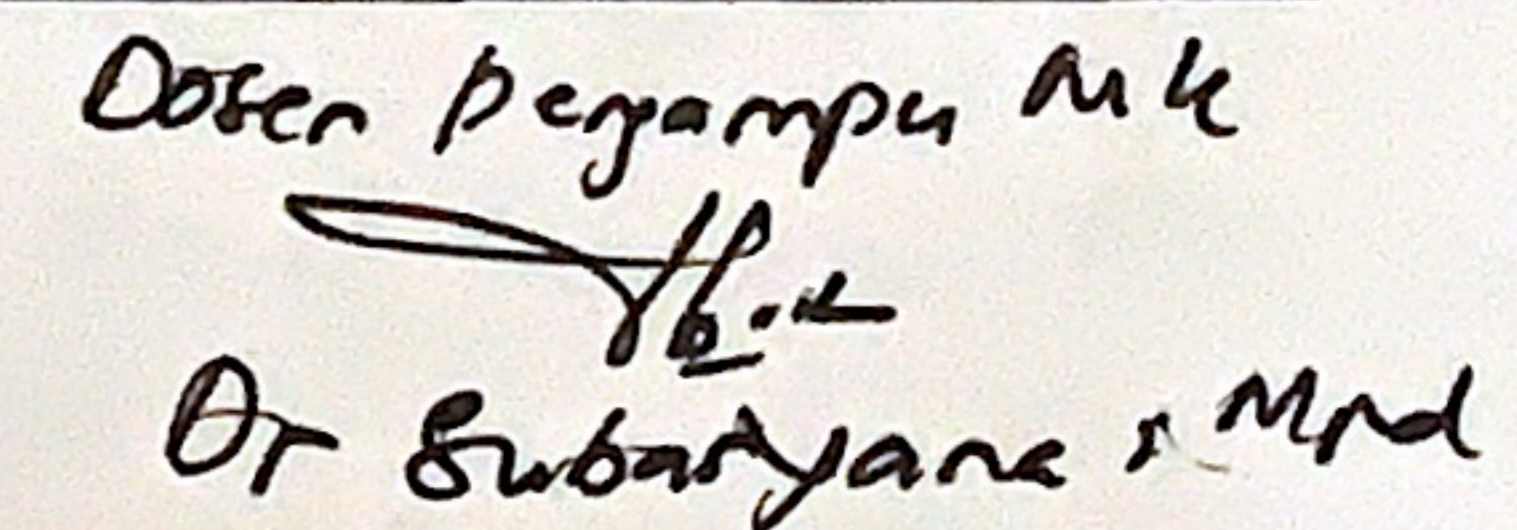 Dosen Pengampu MK
Dr Subaryana, Mpd